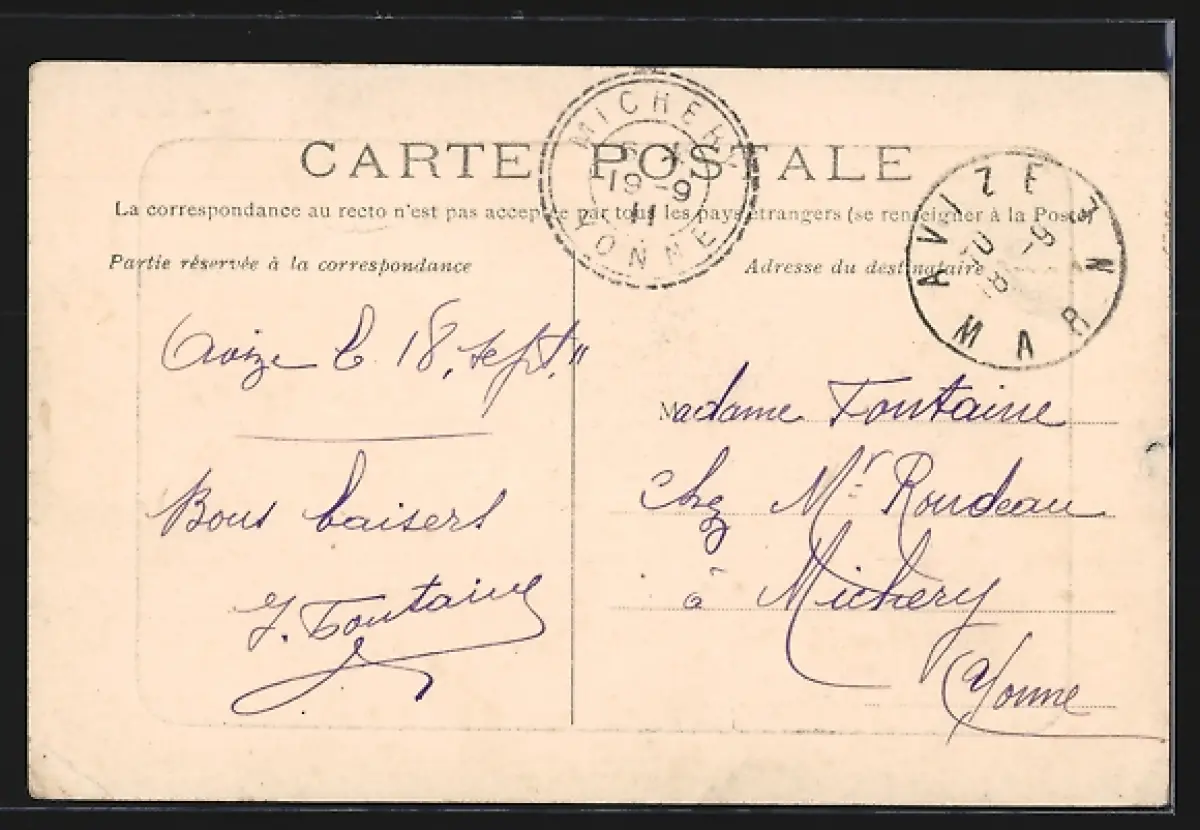 CARTE POSTALE
La correspondance au recto n'est pas acceptée par tous les pays étrangers (se renseigner à la Poste)
Partie réservée à la correspondance
Adresse du destinataire
MICHERY
19-9
11
YONNE
AVIZE
MARNE
18 -9
Avize le 18, sept. 11
Bons baisers
J. Fontaine
Madame Fontaine
chez Mr Rondeau
à Michery
Yonne